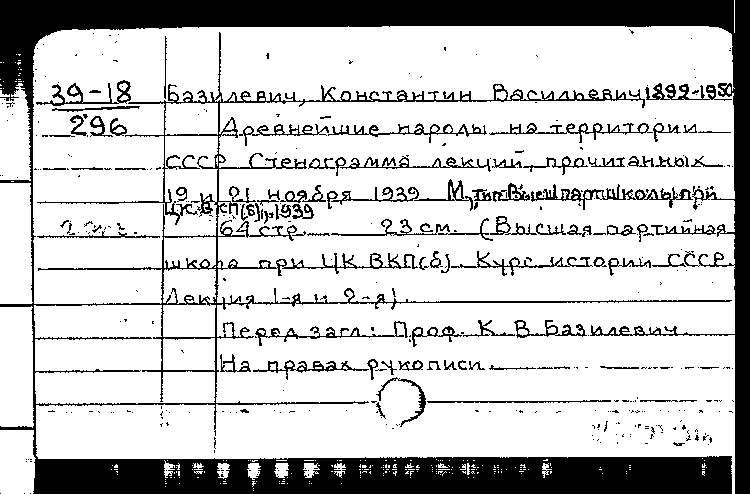 39-18 Базилевич, Константин Васильевич, 1892-1950
296 Древнейшие народы на территории
СССР Стенограмма лекций, прочитанных
19 и 21 ноября 1939. М., тип. Высш парт школы при
ЦК ВКП(б), 1939
64 стр. 23 см. (Высшая партийная
школа при ЦК ВКП(б). Курс истории СССР.
Лекция 1-я и 2-я).
Перед загл.: Проф. К. В. Базилевич.
На правах рукописи.